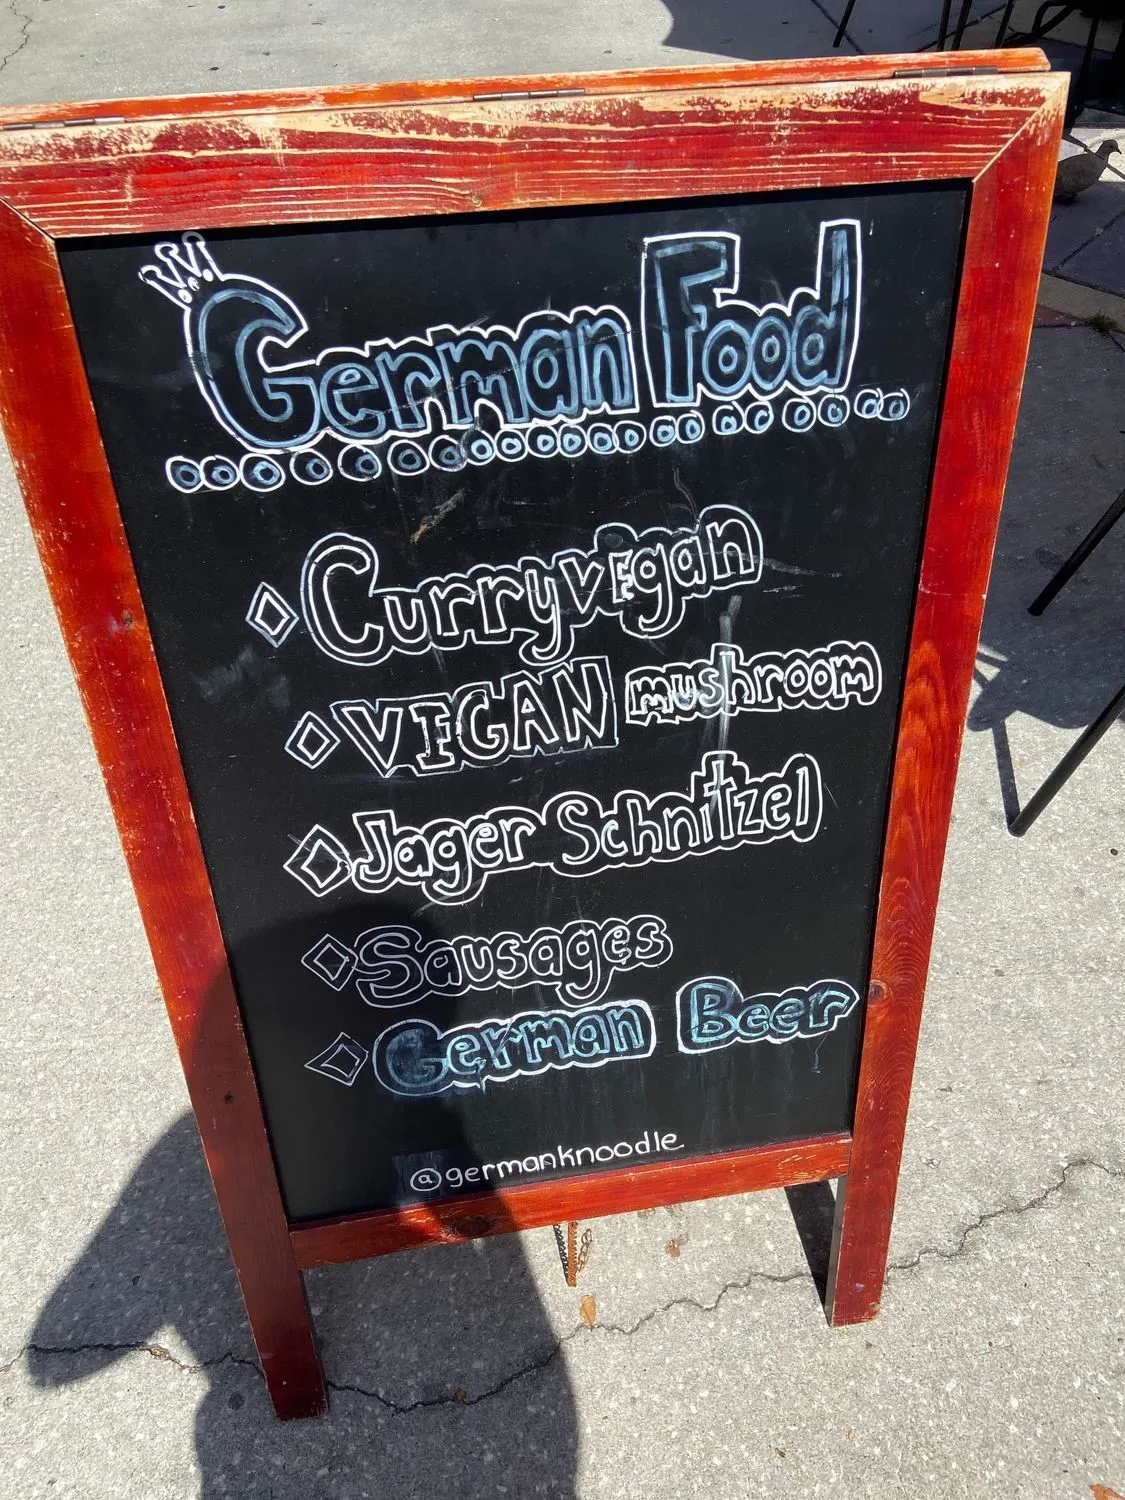 German Food
Curryvegan
VEGAN mushroom
Jager Schnitzel
Sausages
German Beer
@germanknoodle